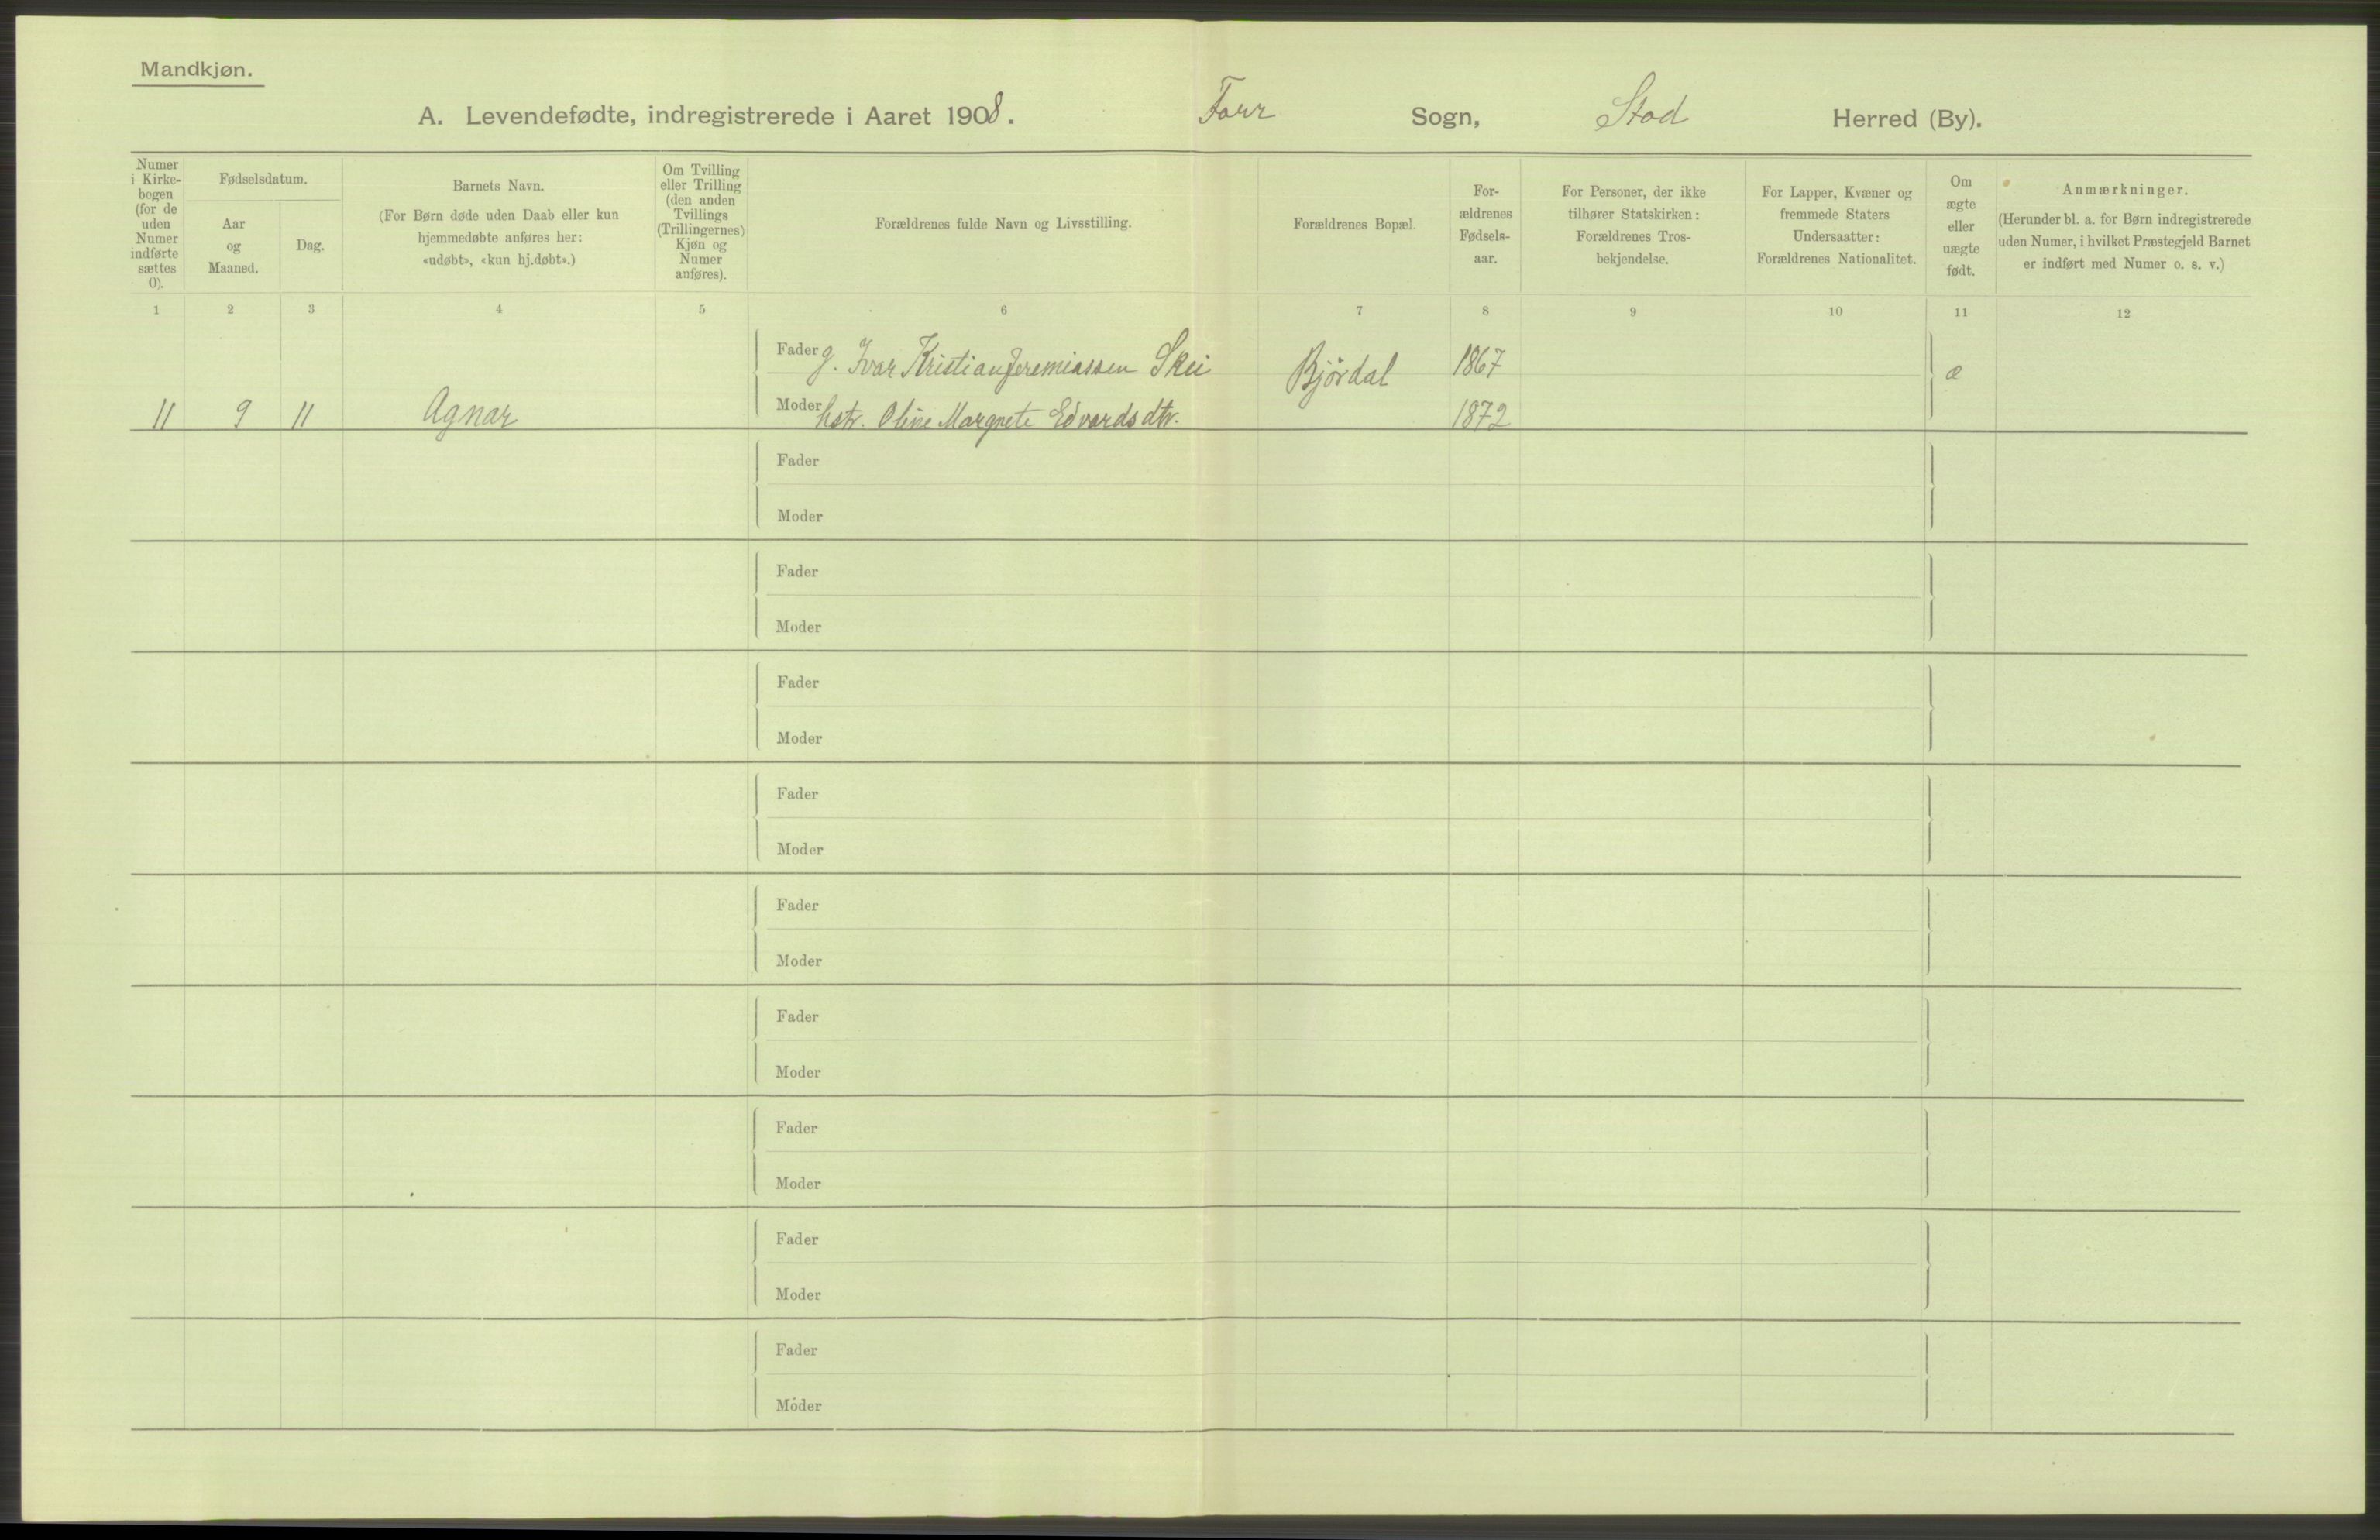 Mandkjøn.
A. Levendefødte, indregistrerede i Aaret 1908. Forr Sogn, Stod Herred (By).
Numer
i Kirke-
bogen
(for de
uden
Numer
indførte
sættes
0).
Fødselsdatum.
Aar
og
Maaned.
Dag.
Barnets Navn.
(For Børn døde uden Daab eller kun
hjemmedøbte anføres her:
«udøbt», «kun hj.døbt».)
Om Tvilling
eller Trilling
(den anden
Tvillings
(Trillingernes)
Kjøn og
Numer
anføres).
Forældrenes fulde Navn og Livsstilling.
Forældrenes Bopæl.
For-
ældrenes
Fødsels-
aar.
For Personer, der ikke
tilhører Statskirken:
Forældrenes Tros-
bekjendelse.
For Lapper, Kvæner og
fremmede Staters
Undersaatter:
Forældrenes Nationalitet.
Om
ægte
eller
uægte
født.
Anmærkninger.
(Herunder bl. a. for Børn indregistrerede
uden Numer, i hvilket Præstegjeld Barnet
er indført med Numer o. s. v.)
1 2 3 4 5 6 7 8 9 10 11 12
Fader g. Ivar Kristian Jeremiassen Skei Bjørdal 1867 æ
11 9 11 Agnar Moder hstr. Oline Margrete Edvardsdtr. 1872
Fader
Moder
Fader
Moder
Fader
Moder
Fader
Moder
Fader
Moder
Fader
Moder
Fader
Moder
Fader
Moder
Fader
Moder